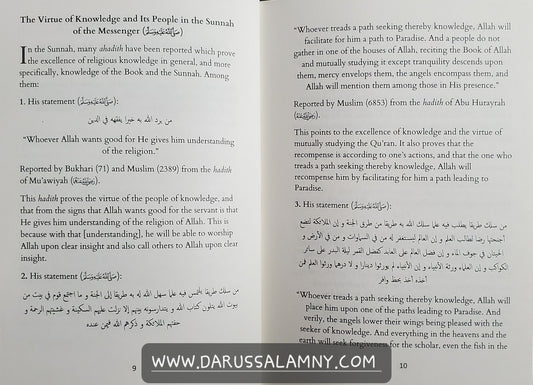 The Virtue of Knowledge and Its People in the Sunnah
of the Messenger (ﷺ)
In the Sunnah, many ahadith have been reported which prove
the excellence of religious knowledge in general, and more
specifically, knowledge of the Book and the Sunnah. Among
them:
1. His statement (ﷺ):
من يرد الله به خيرا يفقهه في الدين
"Whoever Allah wants good for He gives him understanding
of the religion."
Reported by Bukhari (71) and Muslim (2389) from the hadith
of Mu'awiyah (رضي الله عنه).
This hadith proves the virtue of the people of knowledge, and
that from the signs that Allah wants good for the servant is that
He gives him understanding of the religion of Allah. This is
because with that [understanding], he will be able to worship
Allah upon clear insight and also call others to Allah upon clear
insight.
2. His statement (ﷺ):
من سلك طريقا يلتمس فيه علما سهل الله له به طريقا إلى الجنة و ما اجتمع قوم في بيت من
بيوت الله يتلون كتاب الله و يتدارسونه بينهم إلا نزلت عليهم السكينة و غشيتهم الرحمة و
حفتهم الملائكة و ذكرهم الله فمن عنده
9
"Whoever treads a path seeking thereby knowledge, Allah will
facilitate for him a path to Paradise. And a people do not
gather in one of the houses of Allah, reciting the Book of Allah
and mutually studying it except tranquility descends upon
them, mercy envelops them, the angels encompass them, and
Allah will mention them among those in His presence."
Reported by Muslim (6853) from the hadith of Abu Hurayrah
(رضي الله عنه).
This points to the excellence of knowledge and the virtue of
mutually studying the Qu'ran. It also proves that the
recompense is according to one's actions, and that the one who
treads a path seeking thereby knowledge, Allah will
recompense him by facilitating for him a path leading to
Paradise.
3. His statement (ﷺ):
من سلك طريقا يطلب فيه علما سلك الله به طريقا من طرق الجنة و إن الملائكة لتضع
أجنحتها رضا لطالب العلم و إن العالم ليستغفر له من في السماوات و من في الأرض و
الحيتان في جوف الماء و إن فضل العالم على العابد كفضل القمر ليلة البدر على سائر
الكواكب و إن العلماء ورثة الأنبياء و إن الأنبياء لم يورثوا دينارا و لا درهما ورثوا العلم فمن
أخذه أخذ بحظ وافر
"Whoever treads a path seeking thereby knowledge, Allah will
place him upon one of the paths leading to Paradise. And
verily, the angels lower their wings being pleased with the
seeker of knowledge. And everything in the heavens and the
earth will seek forgiveness for the scholar, even the fish in the
10
WWW.DARUSSALAMNY.COM